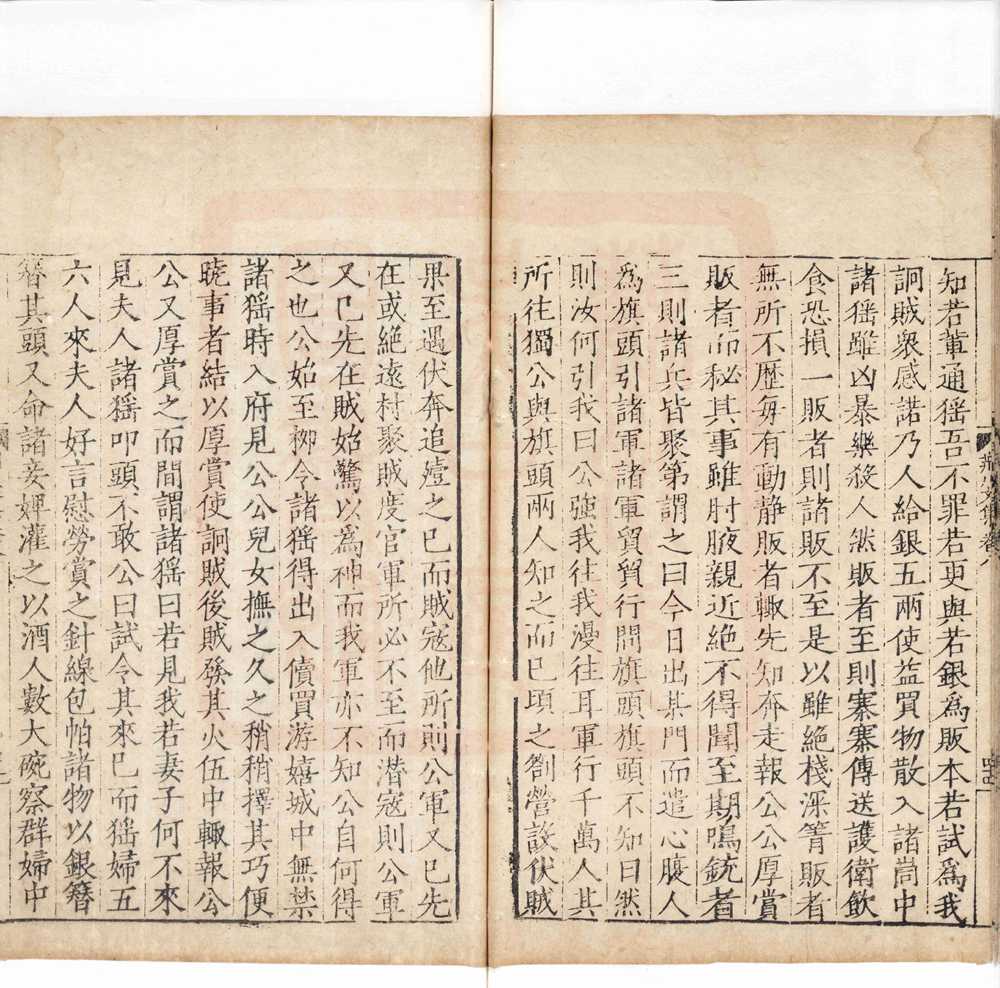 知若軰通猺吾不罪若更與若銀爲販本若試爲我
詗賊衆感諾乃人給銀五兩使益買物散入諸峝中
諸猺雖凶暴樂殺人然販者至則寨寨傳送護衛飲
食恐損一販者則諸販不至是以雖絶棧深箐販者
無所不歷每有動靜販者輙先知奔走報公公厚賞
販者而秘其事雖肘腋親近絶不得聞至期鳴銃者
三則諸兵皆聚第謂之曰今日出某門而遣心腹人
爲旗頭引諸軍諸軍貿貿行問旗頭旗頭不知曰然
則汝何引我曰公強我往我漫往耳軍行千萬人其
所往獨公與旗頭兩人知之而已頃之劄營設伏賊
果至遇伏奔追殪之已而賊寇他所則公軍又已先
在或絶遠村聚賊度官軍所必不至而潜寇則公軍
又已先在賊始驚以爲神而我軍亦不知公自何得
之也公始至栁令諸猺得出入儥買游嬉城中無禁
諸猺時入府見公公兒女撫之久之稍稍擇其巧便
曉事者結以厚賞使詗賊後賊發其火伍中輙報公
公又厚賞之而間謂諸猺曰若見我若妻子何不來
見夫人諸猺叩頭不敢公曰試令其來已而猺婦五
六人來夫人好言慰勞賞之針線包帕諸物以銀簪
簪其頭又命諸妾婢灌之以酒人數大碗察群婦中